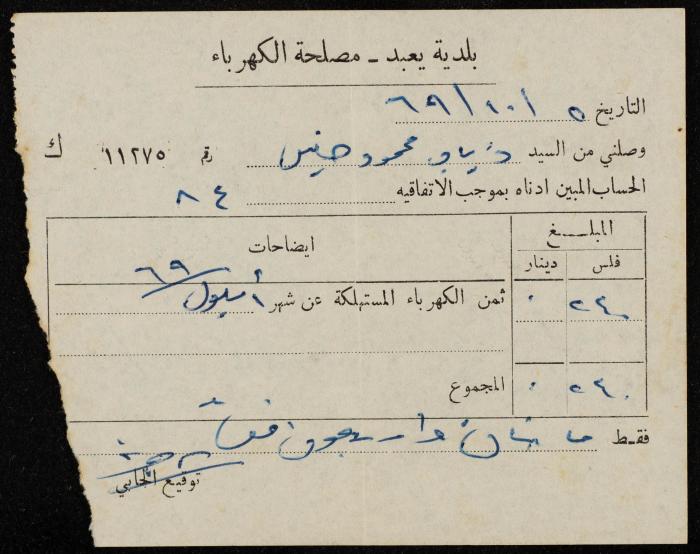 بلدية يعبد - مصلحة الكهرباء
التاريخ ٥ / ١٠ / ٦٩
وصلني من السيد ذياب محمود رقم ١١٢٧٥ ك
الحساب المبين ادناه بموجب الاتفاقيه ٨٤
المبلغ ايضاحات
فلس دينار
٢٤٠ ٠ ثمن الكهرباء المستهلكة عن شهر أيلول / ٦٩
٢٤٠ ٠ المجموع
فقط مايتان واربعون فلس
توقيع الجابي